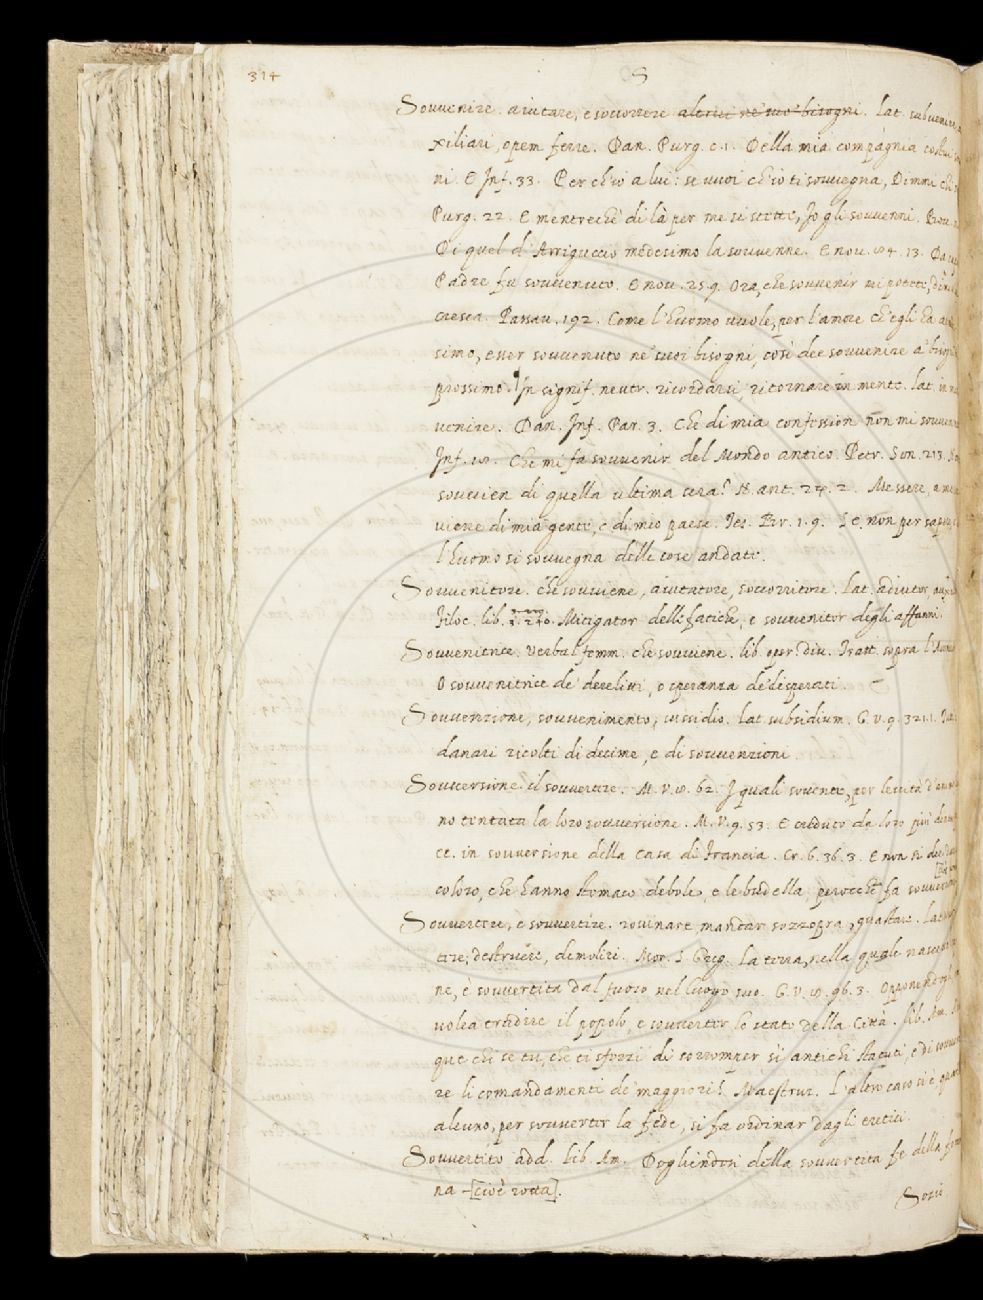 314
S
Souvenire. aiutare, e soccorrere altrui ne' suo' bisogni. Lat. subvenire,
xiliari, opem ferre. Dan. Purg. c. 1. Della mia compagnia costui
ni. E Inf. 33. Perch'io a lui: se vuoi ch'io ti souvegna, Dimmi chi
Purg. 22. E mentreché di là per me si stette, Io gli souvenni. Bocc.
Di quel d'Arriguccio medesimo la souvenne. E nov. 13. Da
Padre fu souvenuto. E nov. 25. 9. Ora, che souvenir mi potete,
cresca. Passav. 192. Come l'huomo vuole, per l'amore ch'egli ha a
simo, esser souvenuto ne' suoi bisogni, così dee souvenire a' bisogni
prossimo. In signif. neutr. ricordarsi, ritornare in mente. lat. in
venire. Dan. Inf. Par. 3. Che di mia confession non mi souvenne
Inf. 18. Che mi fa souvenir del Mondo antico. Petr. Son. 213.
souvien di quella ultima sera? N. ant. 24. 2. Messere, a me
viene di mia gente, e di mio paese. Tes. Br. 1. 9. Se non per
l'huomo si souvegna delle cose andate.
Souvenitore. che souviene, aiutatore, soccorritore. lat. adiutor,
Filoc. lib. Mitigator delle fatiche, e souvenitor degli affanni.
Souvenitrice. Verbal femm. che souviene. lib. oper. div. Tratt. sopra l'
O souvenitrice de' derelitti, o speranza de' disperati.
Souvenzione, souvenimento, sussidio. Lat. subsidium. G. V. 9. 321. 1.
danari ricolti di decime, e di souvenzioni.
Souversione. il souvertire. M. V. 8. 62. I quali sovente, per levità d'
no tentata la loro souversione. M. V. 9. 53. E caduto da loro più
ce. in souversione della casa di Francia. Cr. 6. 36. 3. E non si dee
coloro, che hanno stomaco debole, e le budella, perocché fa souversion
Souvertere, e souvertire. rovinare, mandar sozzopra, guastare. Lat.
tire, destruere, demolire. Mor. S. Greg. La terra, nella quale nascea
ne, è souvertita dal fuoco nel luogo suo. G. V. 8. 96. 3. Opponendogli
volea tradire il popolo, e souverter lo stato della Città. lib. Am.
que chi se tu, che ti sforzi di corromper si antichi statuti, e di souver
re li comandamenti de' maggiori? Maestruz. L'altro caso si è quando
alcuno, per souvertir la fede, si fa ordinar dagli eretici.
Souvertito add. lib. Am. Dogliendosi della souvertita fe della
na [cioè rotta].
Sozia